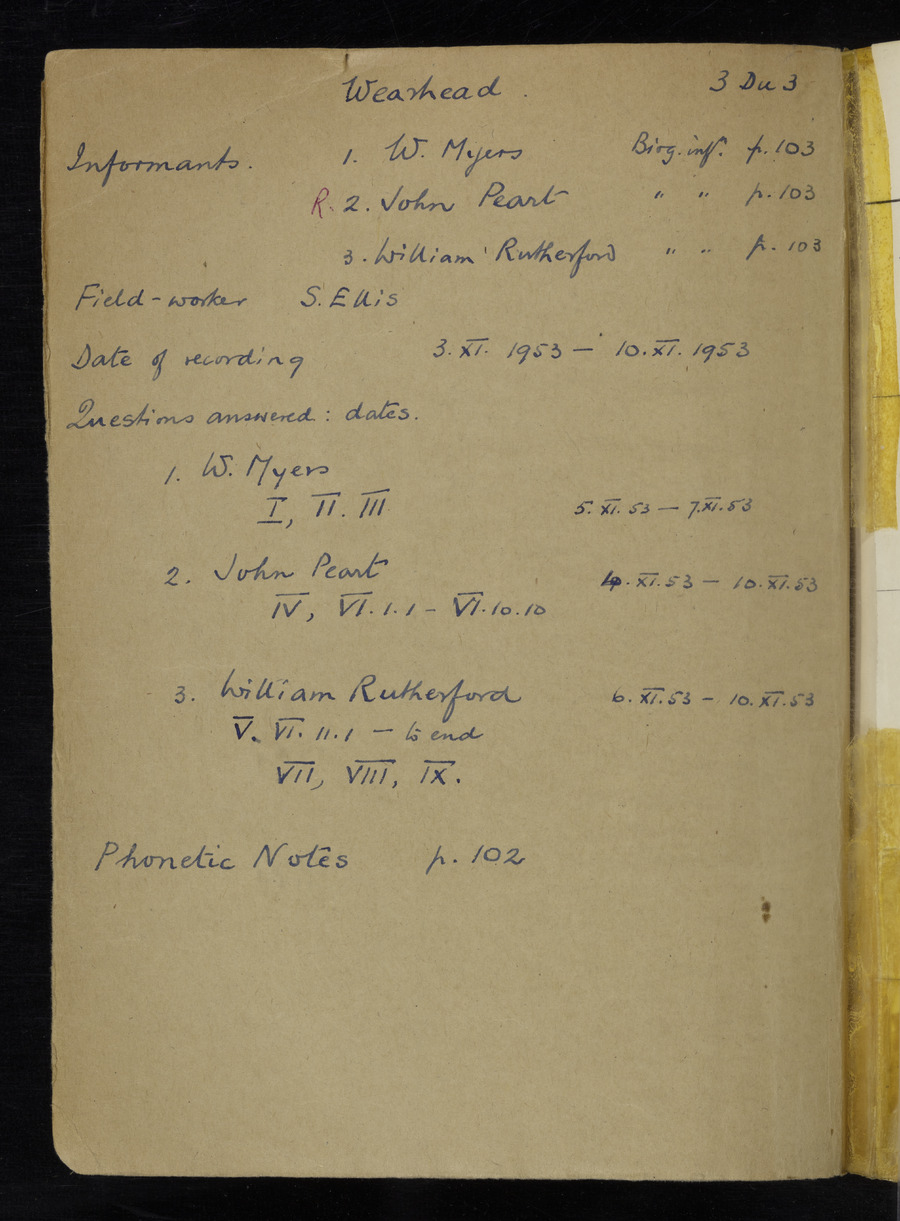 Wearhead. 3 Du 3
Informants. 1. W. Myers Biog. inf. p. 103
R. 2. John Peart " " p. 103
3. William Rutherford " " p. 103
Field-worker S. Ellis
Date of recording 3. XI. 1953 — 10. XI. 1953
Questions answered: dates.
1. W. Myers
I, II. III 5. XI. 53 — 7. XI. 53
2. John Peart 4. XI. 53 — 10. XI. 53
IV, VI. 1. 1 - VI. 10. 10
3. William Rutherford 6. XI. 53 — 10. XI. 53
V. VI. 11. 1 — to end
VII, VIII, IX.
Phonetic Notes p. 102